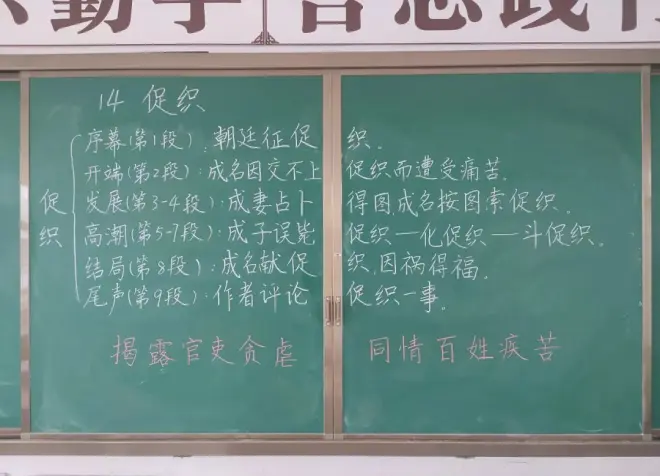 勤学 善思 践行
14 促织
促织
序幕(第1段):朝廷征促织。
开端(第2段):成名因交不上促织而遭受痛苦。
发展(第3-4段):成妻占卜得图成名按图索促织。
高潮(第5-7段):成子误毙促织—化促织—斗促织。
结局(第8段):成名献促织,因祸得福。
尾声(第9段):作者评论促织一事。
揭露官吏贪虐 同情百姓疾苦